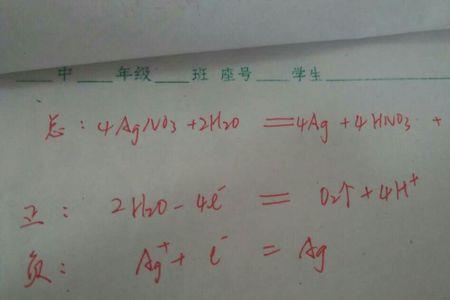 中 年级 班 座号 学生
总：4AgNO3+2H2O=4Ag+4HNO3+
正：2H2O-4e⁻=O2↑+4H⁺
负：Ag⁺+e⁻=Ag